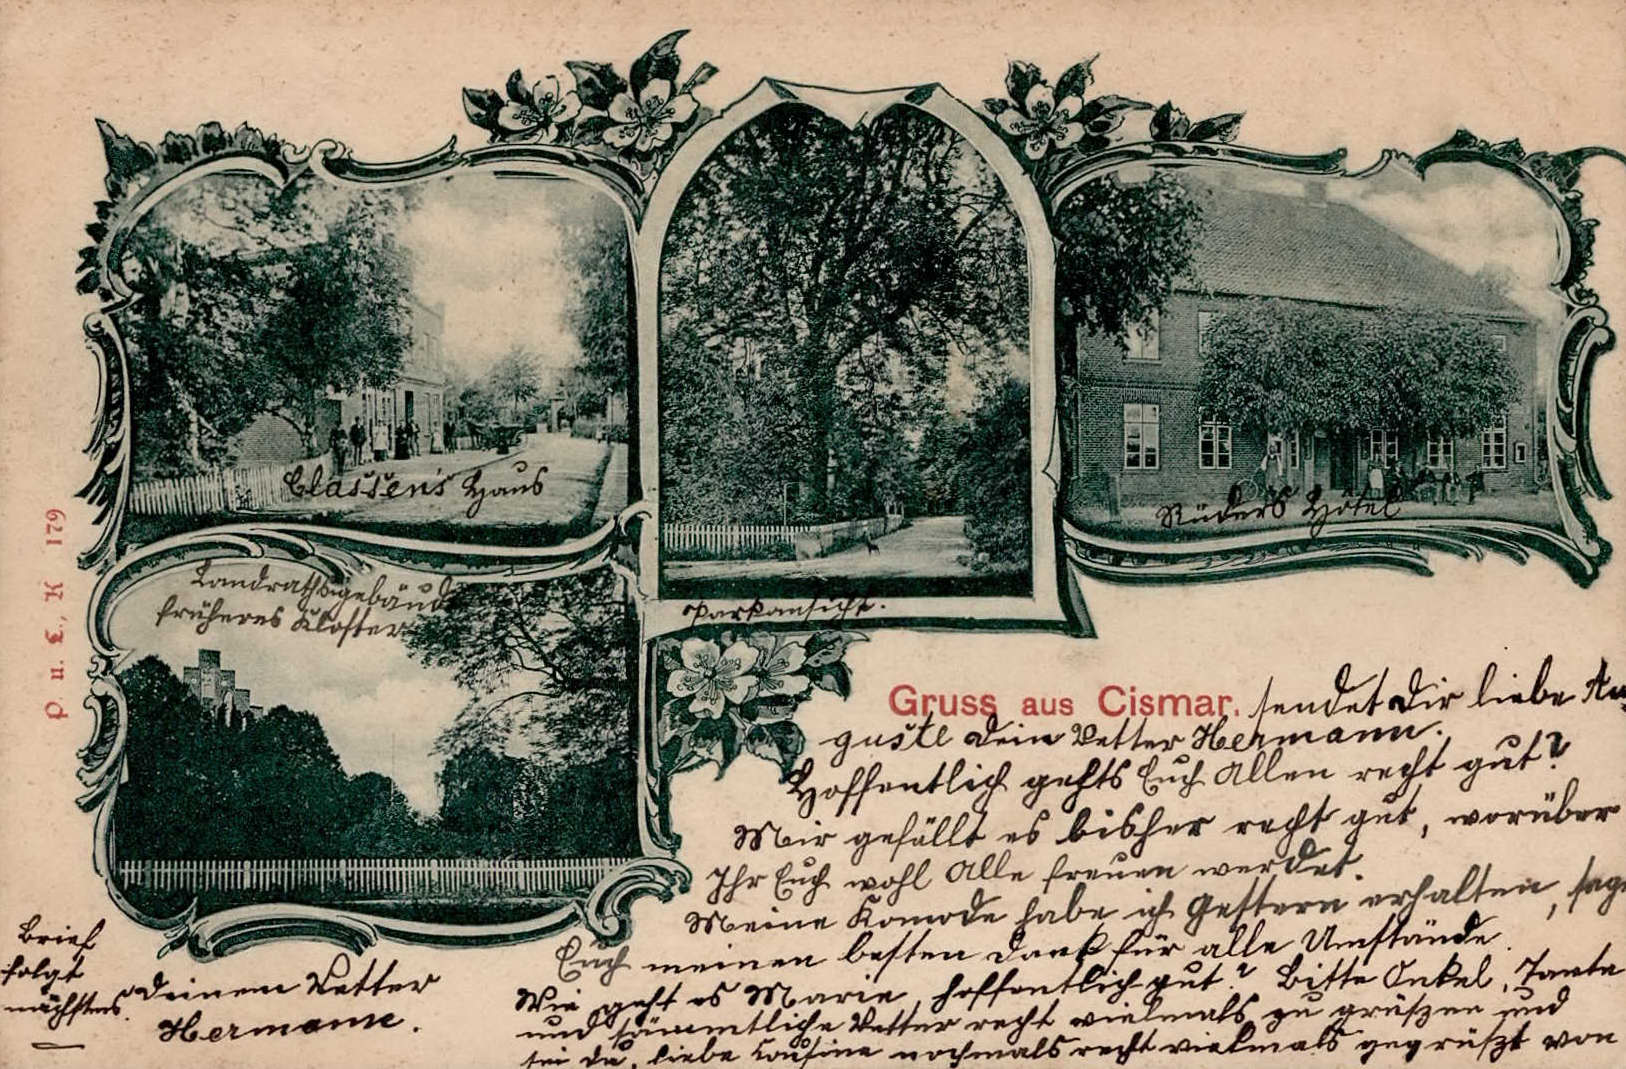 Classen's Haus
Rüders Hôtel
Parkansicht.
Landrathsgebäude
früheres Kloster
P. u. L., K 179
Gruss aus Cismar. sendet Dir liebe Au-
guste Dein Vetter Hermann.
Hoffentlich gehts Euch Allen recht gut?
Mir gefällt es bisher recht gut, worüber
Ihr Euch wohl Alle freuen werdet.
Meine Komode habe ich Gestern erhalten, sage
Euch meinen besten Dank für alle Umstände.
Wie geht es Marie, hoffentlich gut? Bitte Onkel, Tante
und sämmtliche Vetter recht vielmals zu grüszen und
sei Du, liebe Cousine nochmals recht vielmals gegrüszt von
Deinem Vetter
Hermann.
Brief
folgt
nächstens.